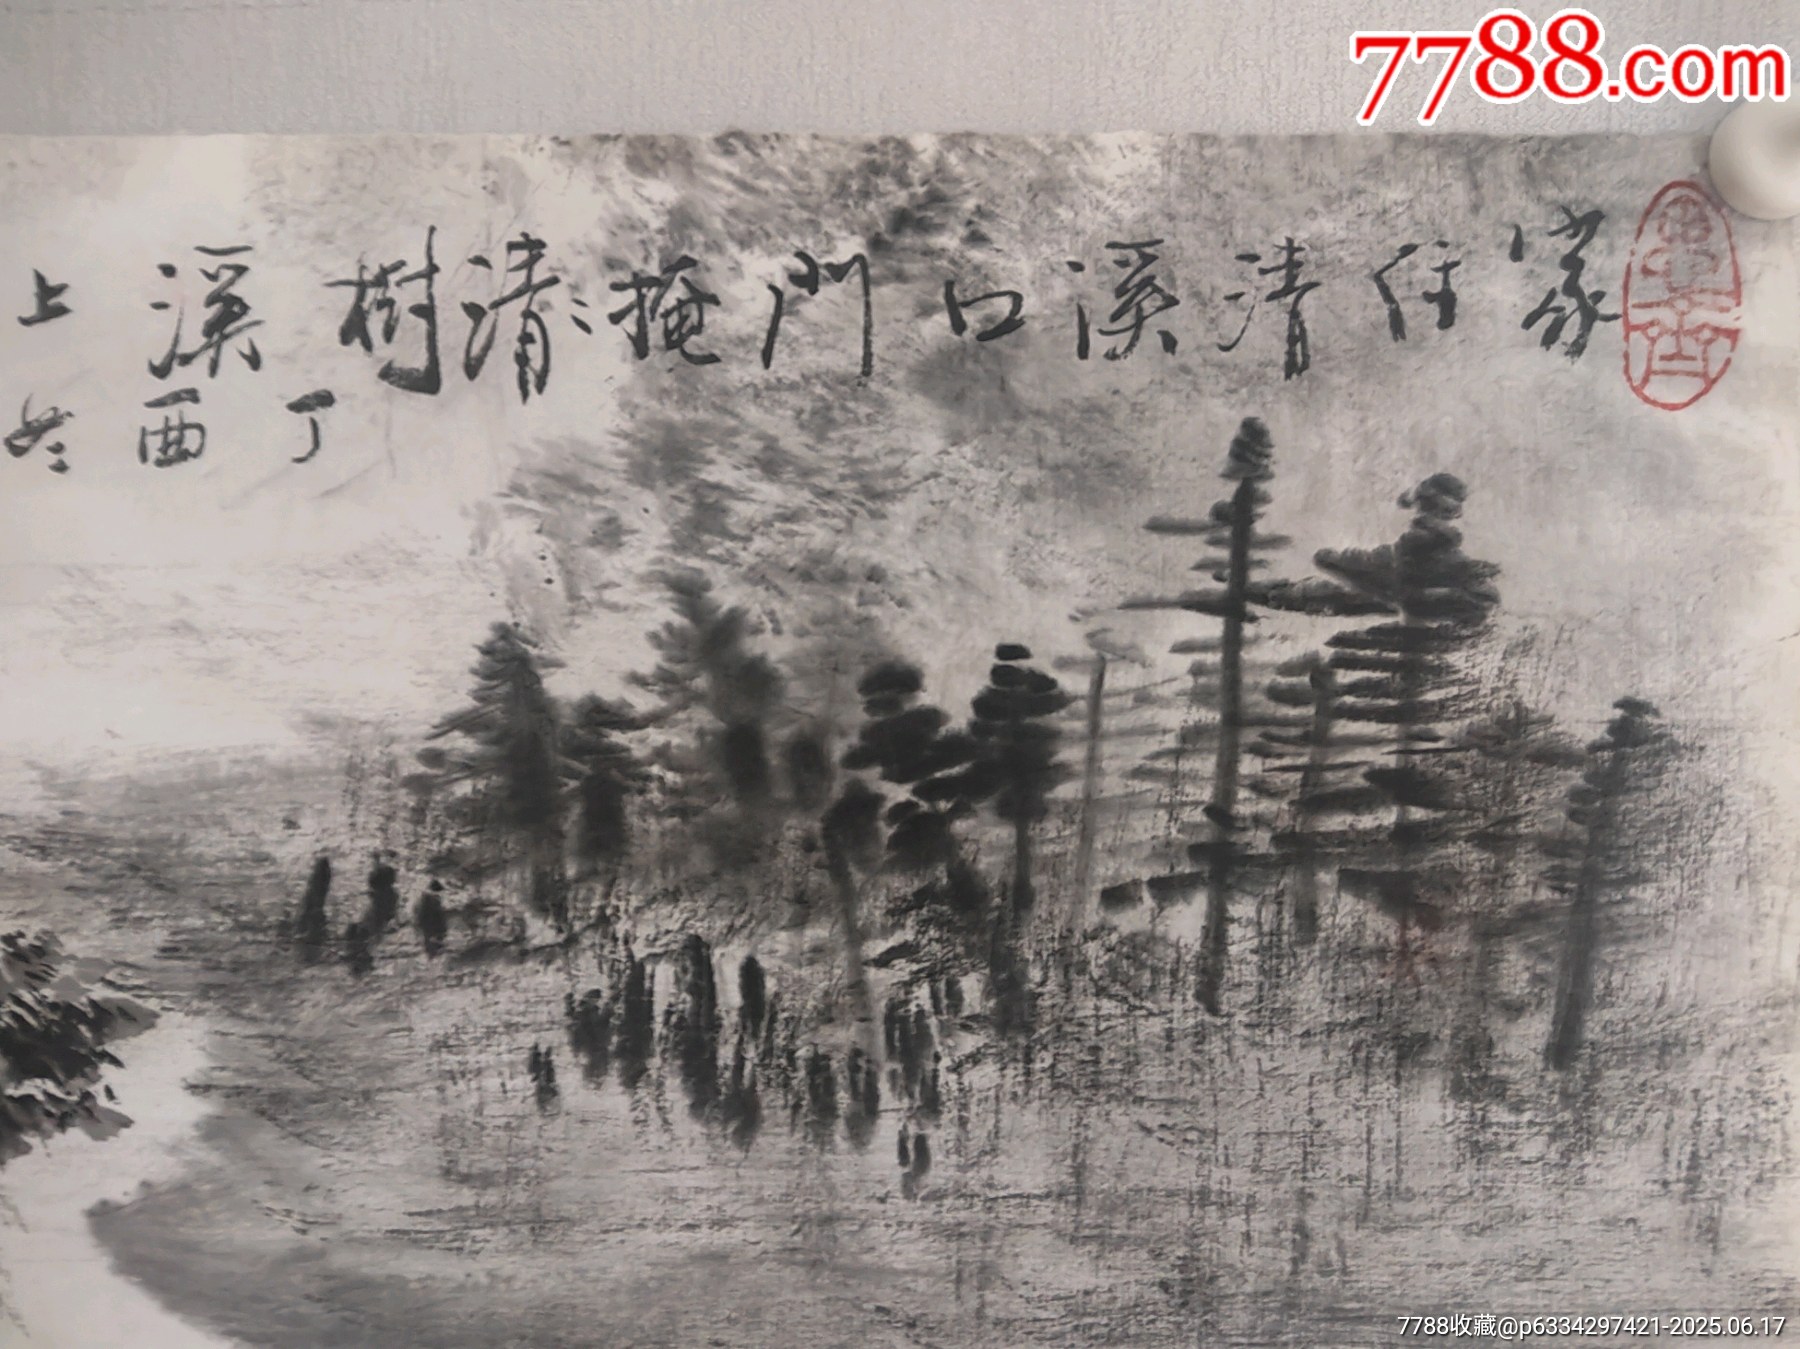 7788.com
家住清溪口門掩清溪樹溪上
丁酉冬
墨香
7788收藏@p6334297421-2025.06.17